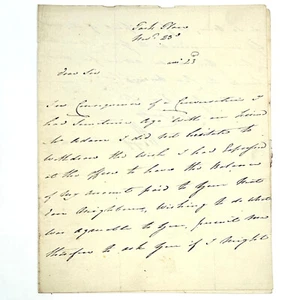 Park Place
Nov. 23d
Dear Sir
In Consequence of a Conversation I
had Sometime Ago with our friend
Mr Adam I did not hesitate to
withdraw the Work I had Exposed
at the Office to have the Balance
of my Account paid to Your
Neighbours, Wishing to do what
was agreeable to You, permit me
therefore to ask You if I Might